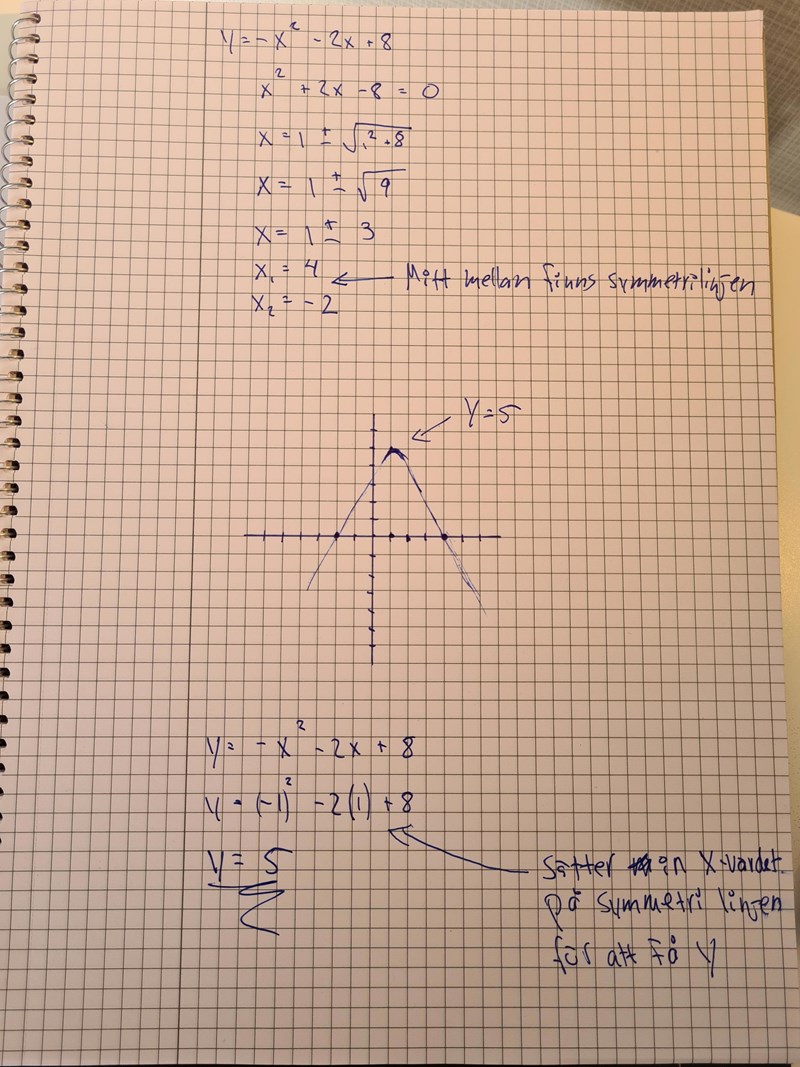 y = -x² - 2x + 8
x² + 2x - 8 = 0
x = 1 ± √1² + 8
x = 1 ± √9
x = 1 ± 3
x₁ = 4 ← Mitt mellan finns symmetrilinjen
x₂ = -2
y = 5
y = -x² - 2x + 8
y = (-1)² - 2(1) + 8
y = 5
Sätter in X-värdet
på symmetri linjen
för att få y